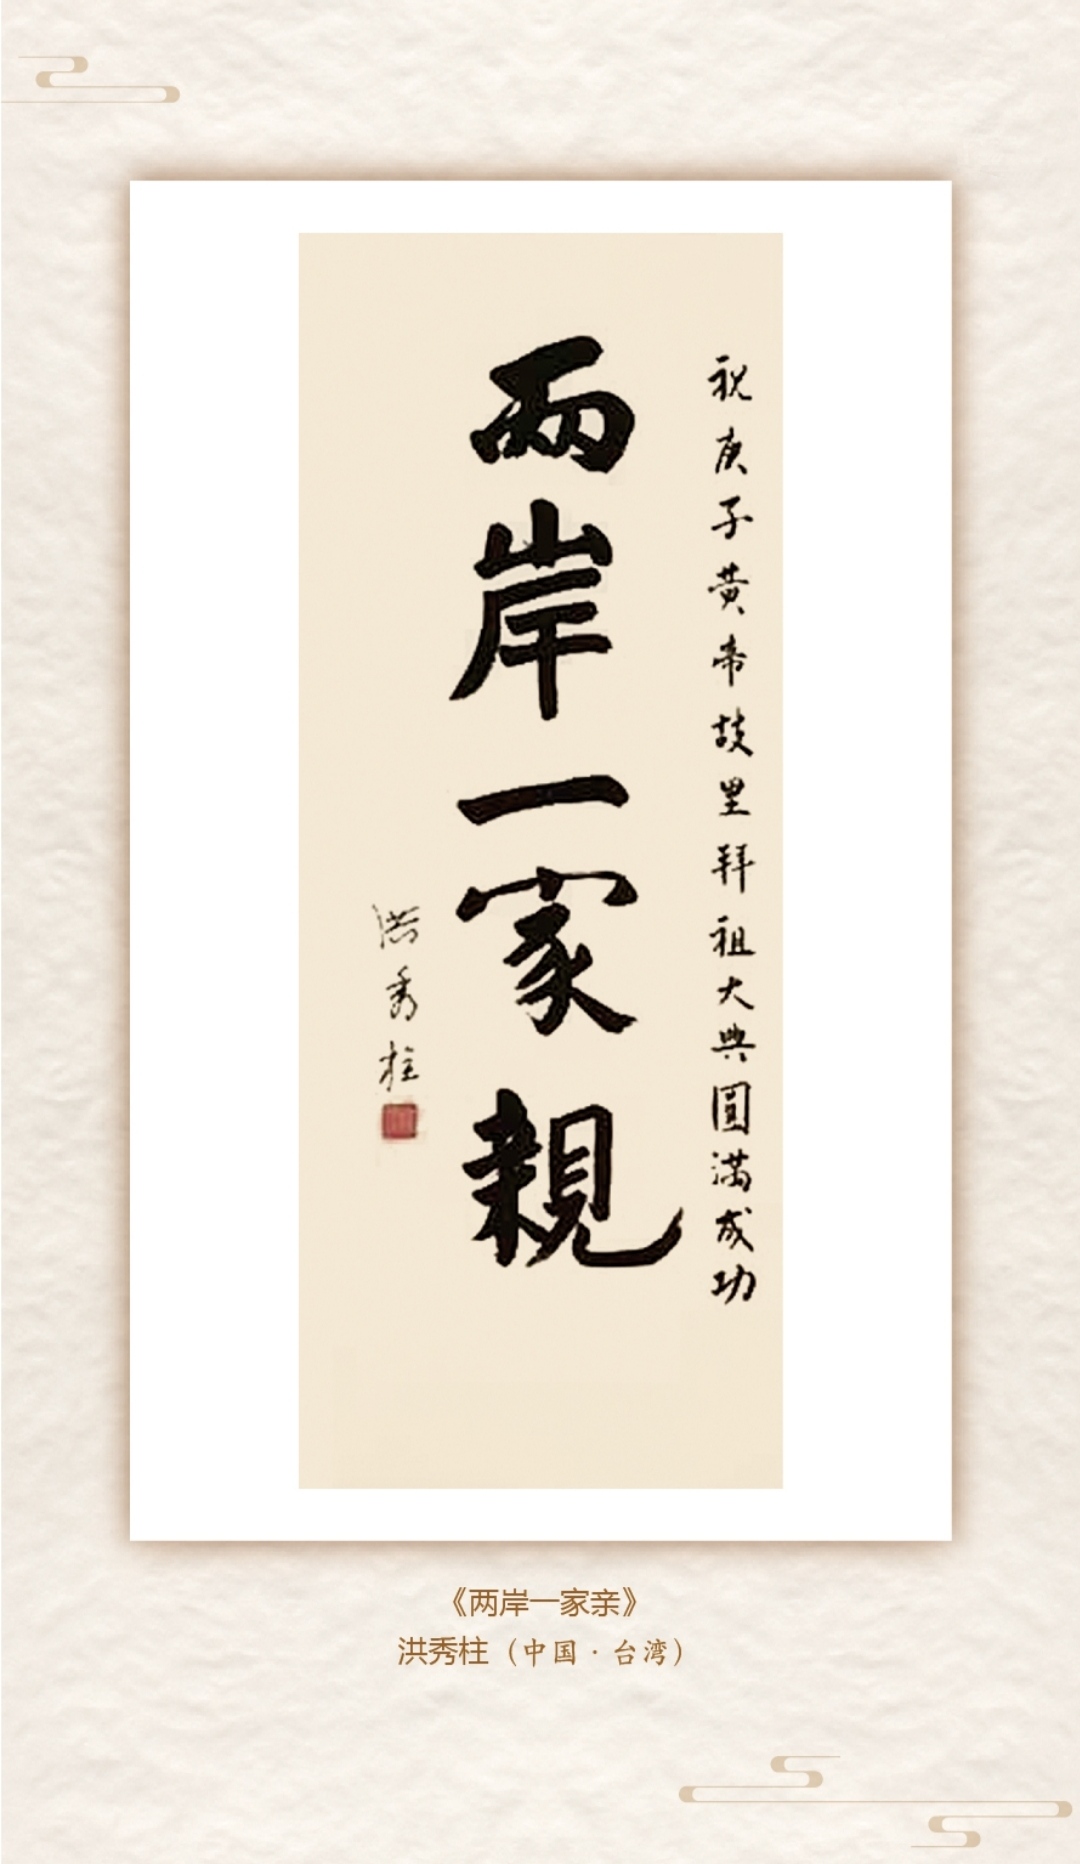 祝庚子黄帝故里拜祖大典圓満成功
兩岸一家親
洪秀柱
《两岸一家亲》
洪秀柱（中国·台湾）